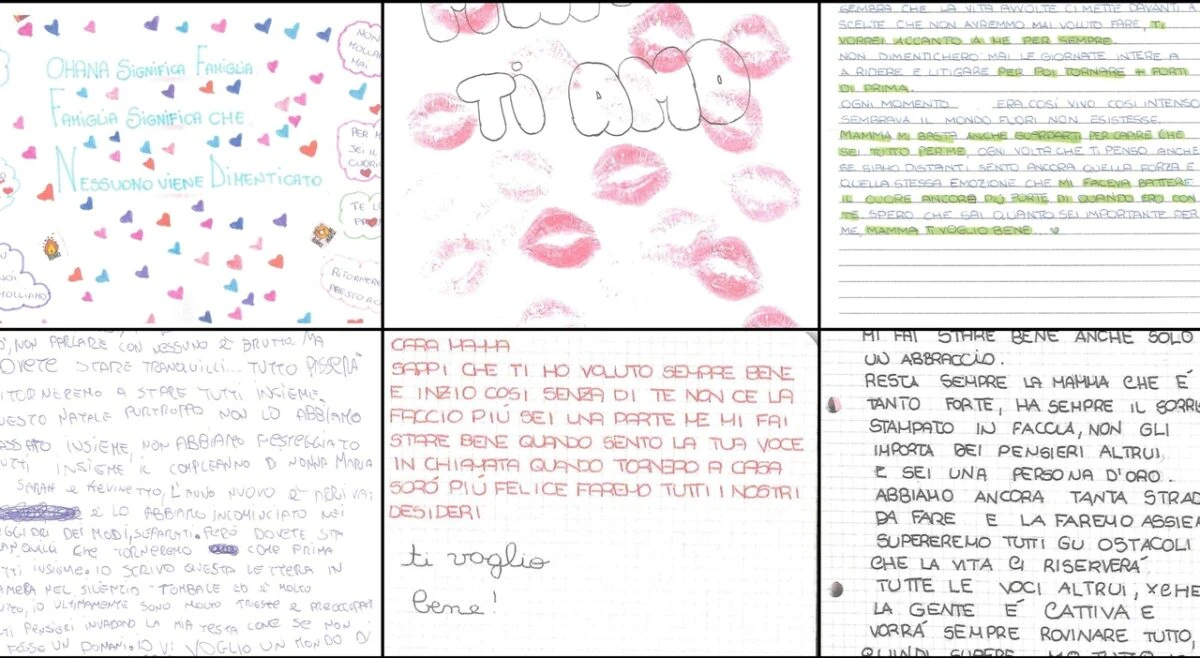 OHANA SIGNIFICA FAMIGLIA
FAMIGLIA SIGNIFICA CHE
NESSUONO VIENE DIMENTICATO
NON
MOLLAR
MAI
PER M
SEI IL
CUORE
TE LO
NOI
MOLLIAMO
RITORNERE
PRESTO A C
TI AMO
SEMBRA CHE LA VITA AVVOLTE CI METTE DAVANTI A
SCELTE CHE NON AVREMMO MAI VOLUTO FARE, TI
VORREI ACCANTO A ME PER SEMPRE.
NON DIMENTICHERÒ MAI LE GIORNATE INTERE A
A RIDERE E LITIGARE PER POI TORNARE + FORTI
DI PRIMA.
OGNI MOMENTO ERA COSÍ VIVO COSI INTENSO
SEMBRAVA IL MONDO FUORI NON ESISTESSE.
MAMMA MI BASTA ANCHE GUARDARTI PER CAPIRE CHE
SEI TUTTO PER ME, OGNI VOLTA CHE TI PENSO ANCHE
SE SIAMO DISTANTI SENTO ANCORA QUELLA FORZA E
QUELLA STESSA EMOZIONE CHE MI FACEVA BATTERE
IL CUORE ANCORA PIÚ FORTE DI QUANDO ERO CON
TE SPERO CHE SAI QUANTO SEI IMPORTANTE PER
ME, MAMMA TI VOGLIO BENE...
NON PARLARE CON NESSUNO É BRUTTO. MA
DOVETE STARE TRANQUILLI... TUTTO PASSERÀ
RITORNEREMO A STARE TUTTI INSIEME.
QUESTO NATALE PURTROPPO NON LO ABBIAMO
PASSATO INSIEME, NON ABBIAMO FESTEGGIATO
TUTTI INSIEME IL COMPLEANNO DI NONNA MARIA
SARAH E KEVINETTO, L'ANNO NUOVO É ARRIVA
E LO ABBIAMO INCOMINCIATO NEI
PEGGIORI DEI MODI, SEPARATI. PERÓ DOVETE STA
CHE TORNEREMO COME PRIMA
TUTTI INSIEME. IO SCRIVO QUESTA LETTERA IN
CAMERA NEL SILENZIO TOMBALE ED É MOLTO
IO ULTIMAMENTE SONO MOLTO TRISTE E PREOCCUPAT
PENSIERI INVADONO LA MIA TESTA COME SE NON
FOSSE UN DOMANI. IO VI VOGLIO UN MONDO DI
CARA MAMMA
SAPPI CHE TI HO VOLUTO SEMPRE BENE
E INZIO COSI SENZA DI TE NON CE LA
FACCIO PIÚ SEI UNA PARTE ME MI FAI
STARE BENE QUANDO SENTO LA TUA VOCE
IN CHIAMATA QUANDO TORNERÓ A CASA
SORÓ PIÚ FELICE FAREMO TUTTI I NOSTRI
DESIDERI
ti voglio
bene!
MI FAI STARE BENE ANCHE SOLO
UN ABBRACCIO.
RESTA SEMPRE LA MAMMA CHE É
TANTO FORTE, HA SEMPRE IL SORRIS
STAMPATO IN FACCIA, NON GLI
IMPORTA DEI PENSIERI ALTRUI.
E SEI UNA PERSONA D'ORO.
ABBIAMO ANCORA TANTA STRAD
DA FARE E LA FAREMO ASSIEM
SUPEREREMO TUTTI GLI OSTACOLI
CHE LA VITA CI RISERVERÁ
TUTTE LE VOCI ALTRUI, XCHE
LA GENTE É CATTIVA E
VORRÁ SEMPRE ROVINARE TUTTO,